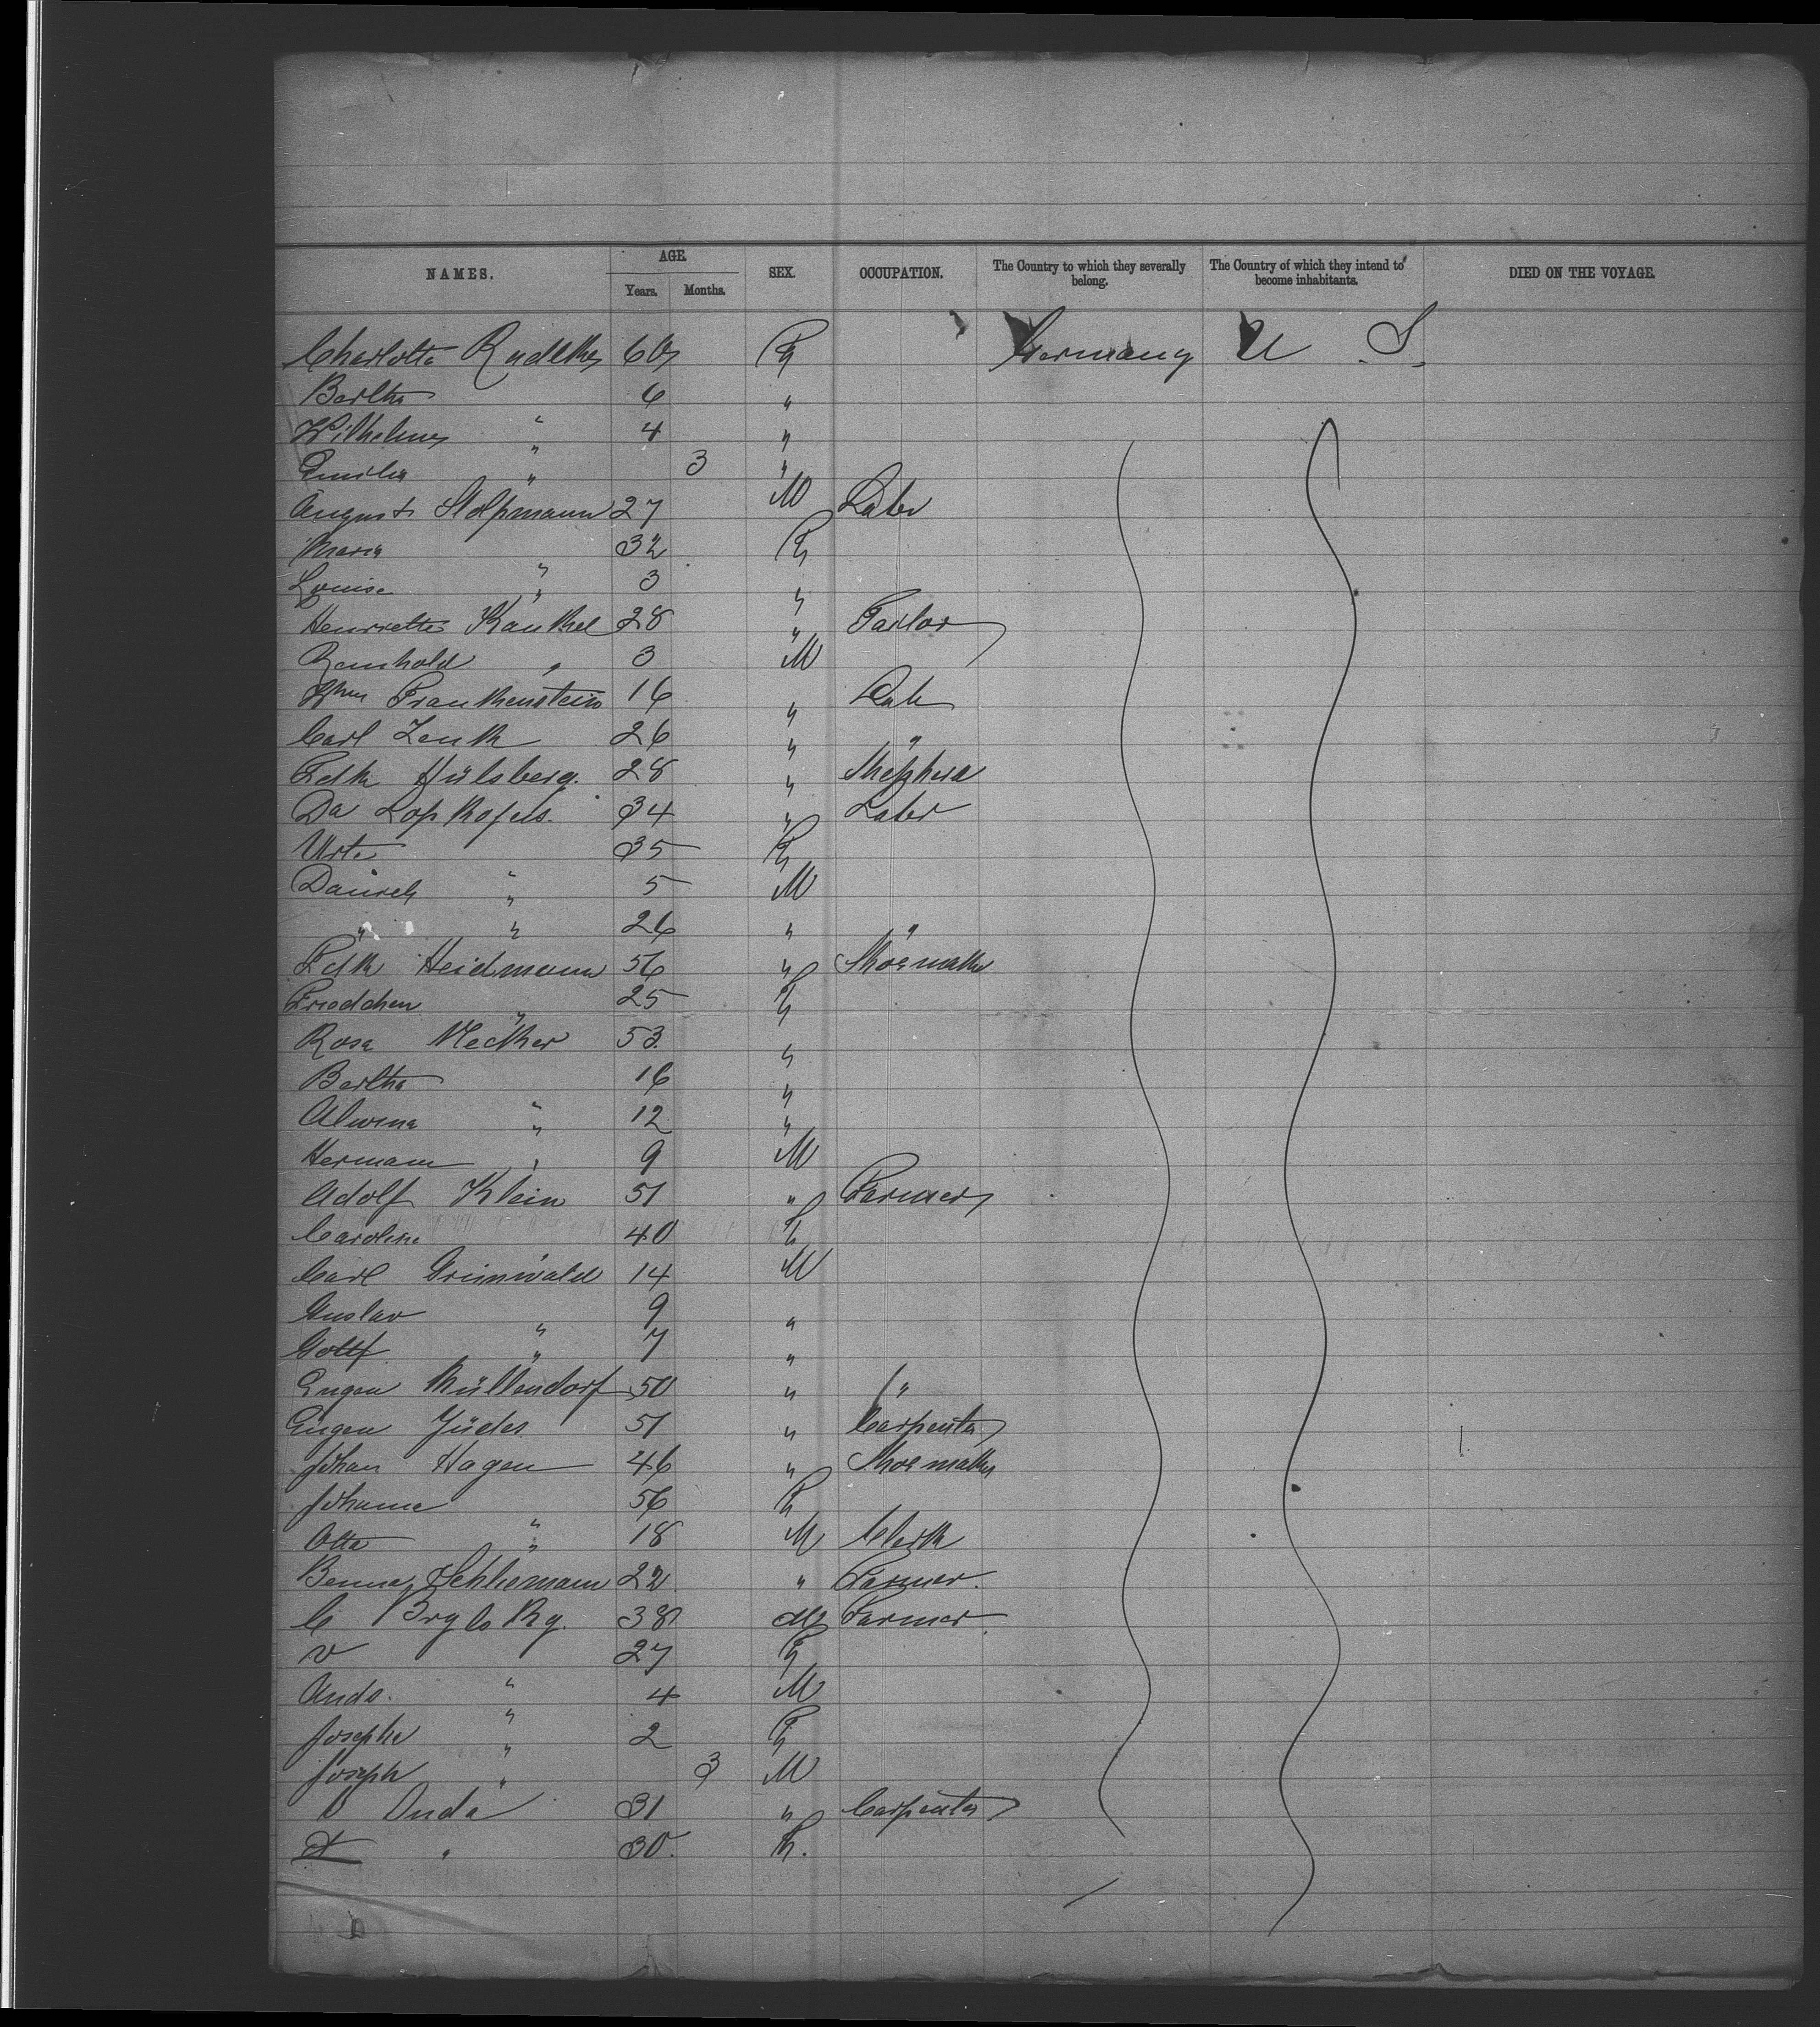 NAMES. AGE. Years. Months. SEX. OCCUPATION. The Country to which they severally belong. The Country of which they intend to become inhabitants. DIED ON THE VOYAGE.
Charlotte 60 F Germany U S.
Bertha 6 "
Wilhelm " 4 "
Emilia " 3 "
August Stolpmann 27 M Labr
Maria 32 F
Louise " 3 "
Henriette Kunkel 28 " Tailor
Reinhold " 3 M
Frankenstein 16 "
Carl Zenk 26 " "
Fdk Hülsberg. 28 " Shepherd
Da 34 " Labr
Urte 35 F
Daniel " 5 M
" " 26 " "
Fdk Heidmann 56 " Shoemaker
Friedchen " 25 F
Rosa 53. "
Bertha 16 "
Alwina " 12 "
Hermann " 9 M
Adolf Klein 51 " Farmer
Caroline " 40 F
Carl Grunwald 14 M
Gustav " 9 "
Gottf " 7 "
Eugen Müllendorf 50 " "
Eugen Jüdes 51 " Carpenter
Johan Hagen 46 " Shoemaker
Johanna 56 F
Otto " 18 M Clerk
Benno Schliemann 22 " Farmer.
C 38 M Farmer
V 27 F
Ando. " 4 M
Josepha " 2 F
Joseph " 3 M
Duda 31 " Carpenter
" 30. F.